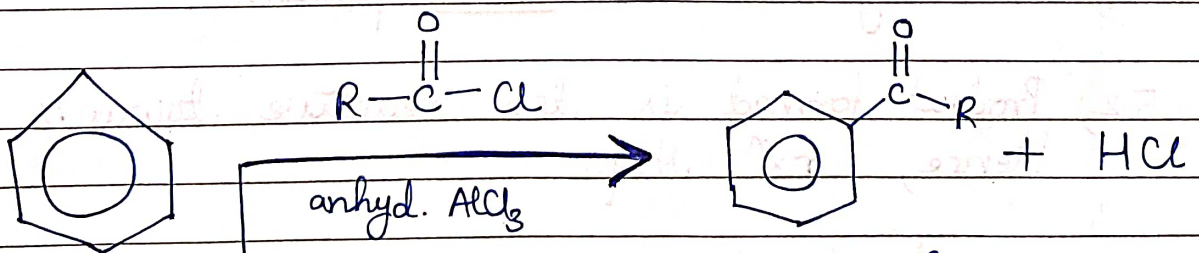 O
R—C—Cl
anhyd. AlCl3
O
C
R
+ HCl